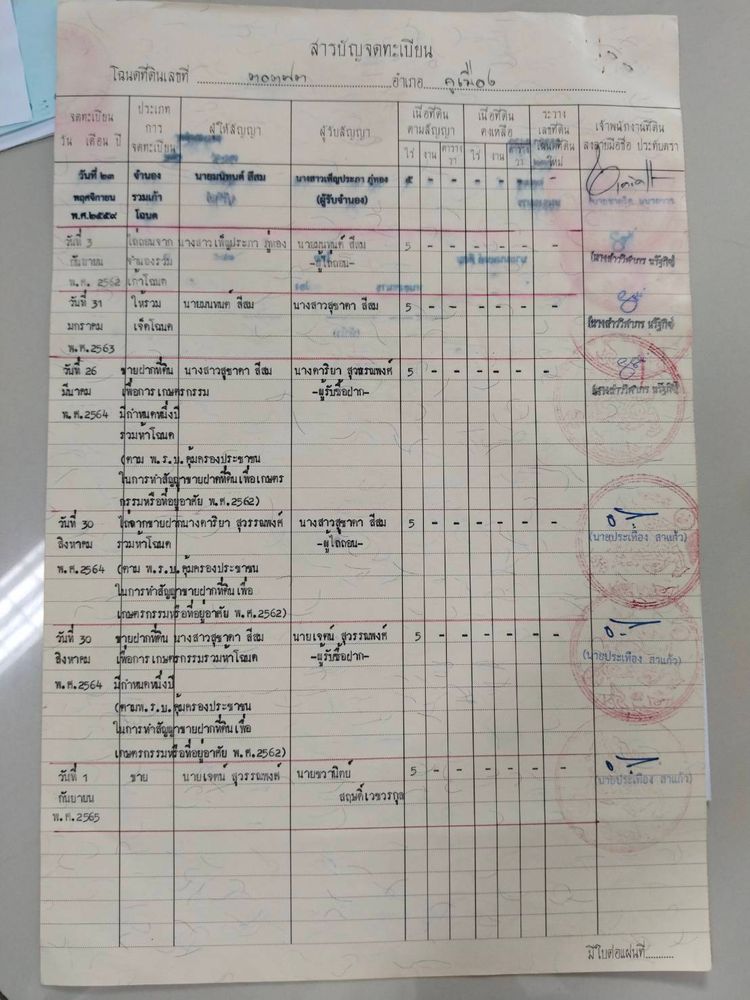 สารบัญจดทะเบียน
โฉนดที่ดินเลขที่ ๓๐๓๗๓ อำเภอ คูเมือง
จดทะเบียน วัน เดือน ปี ประเภทการจดทะเบียน ผู้ให้สัญญา ผู้รับสัญญา เนื้อที่ดินตามสัญญา ไร่ งาน ตารางวา เนื้อที่ดินคงเหลือ ไร่ งาน ระวาง เลขที่ดิน ใหม่ เจ้าพนักงานที่ดิน ลงลายมือชื่อ ประทับตรา
วันที่ ๒๓ จำนอง นายมนัทนต์ สีสม นางสาวเพ็ญประภา ภู่ทอง ๕ - - - - - -
พฤศจิกายน รวมเก้า (ผู้รับจำนอง)
พ.ศ.๒๕๕๙ โฉนด
วันที่ 3 ไถ่ถอนจาก นางสาวเพ็ญประภา ภู่ทอง นายมนัทนต์ สีสม 5 - - - - - -
กันยายน จำนองรวม -ผู้ไถ่ถอน- (นางสาววิศาภร หรัฐกิจ)
พ.ศ. 2562 เก้าโฉนด
วันที่ 31 ให้รวม นายมนทนต์ สีสม นางสาวสุชาดา สีสม 5 - - - - - -
มกราคม เจ็ดโฉนด (นางสาววิศาภร หรัฐกิจ)
พ.ศ.2563
วันที่ 26 ขายฝากที่ดิน นางสาวสุชาดา สีสม นางดาริยา สุวรรณพงศ์ 5 - - - - - -
มีนาคม เพื่อการเกษตรกรรม -ผู้รับซื้อฝาก- (นางสาววิศาภร หรัฐกิจ)
พ.ศ.2564 มีกำหนดหนึ่งปี
รวมห้าโฉนด
(ตาม พ.ร.บ.คุ้มครองประชาชน
ในการทำสัญญาขายฝากที่ดินเพื่อเกษตร
กรรมหรือที่อยู่อาศัย พ.ศ.2562)
วันที่ 30 ไถ่จากขายฝาก นางดาริยา สุวรรณพงศ์ นางสาวสุชาดา สีสม 5 - - - - - -
สิงหาคม รวมห้าโฉนด -ผู้ไถ่ถอน- (นายประเทือง สาแก้ว)
พ.ศ.2564 (ตาม พ.ร.บ.คุ้มครองประชาชน
ในการทำสัญญาขายฝากที่ดิน เพื่อ
เกษตรกรรมหรือที่อยู่อาศัย พ.ศ.2562)
วันที่ 30 ขายฝากที่ดิน นางสาวสุชาดา สีสม นายเจตน์ สุวรรณพงศ์ 5 - - - - - -
สิงหาคม เพื่อการเกษตรกรรมรวมห้าโฉนด -ผู้รับซื้อฝาก- (นายประเทือง สาแก้ว)
พ.ศ.2564 มีกำหนดหนึ่งปี
(ตามพ.ร.บ.คุ้มครองประชาชน
ในการทำสัญญาขายฝากที่ดินเพื่อ
เกษตรกรรมหรือที่อยู่อาศัย พ.ศ.2562)
วันที่ 1 ขาย นายเจตน์ สุวรรณพงศ์ นายชวานิทย์ 5 - - - - - -
กันยายน สฤษดิ์เวชวรกุล (นายประเทือง สาแก้ว)
พ.ศ.2565
มีใบต่อแผ่นที่